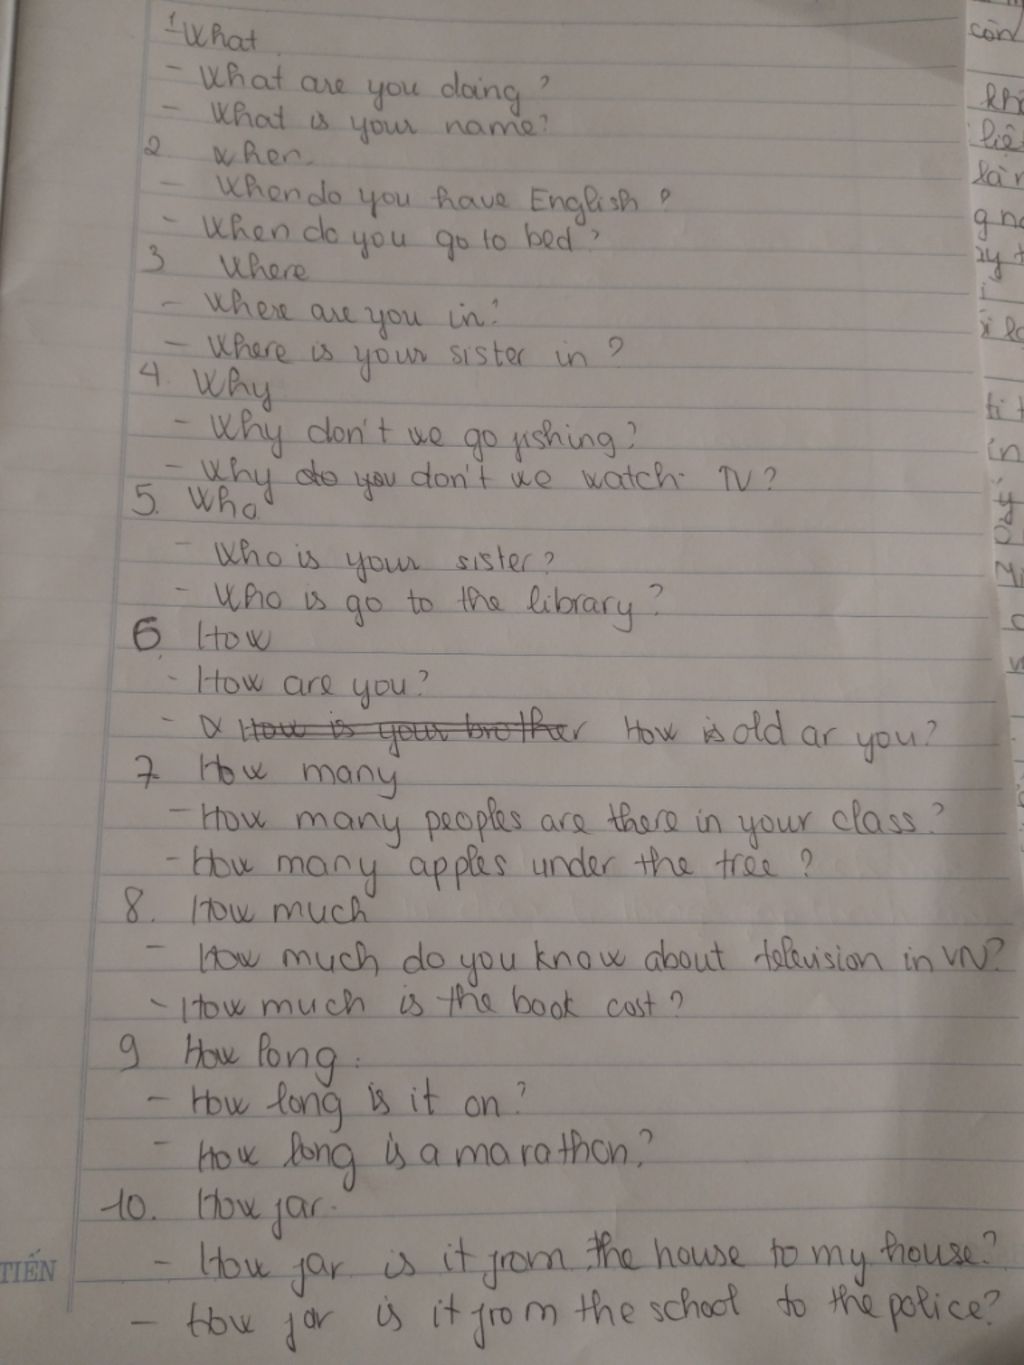 1 What
- What are you doing?
- What is your name?
2 when.
- When do you have English?
- When do you go to bed?
3 Where
- Where are you in?
- Where is your sister in?
4. Why
- Why don't we go fishing?
- Why do you don't we watch TV?
5. Who
- Who is your sister?
- Who is go to the library?
6. How
- How are you?
- How is your brother How is old ar you?
7 How many
- How many peoples are there in your class?
- How many apples under the tree?
8. How much
- How much do you know about television in VN?
- How much is the book cost?
9 How long:
- How long is it on?
- How long is a marathon?
10. How far.
- How far is it from the house to my house?
TIẾN
- How far is it from the school to the police?
còn